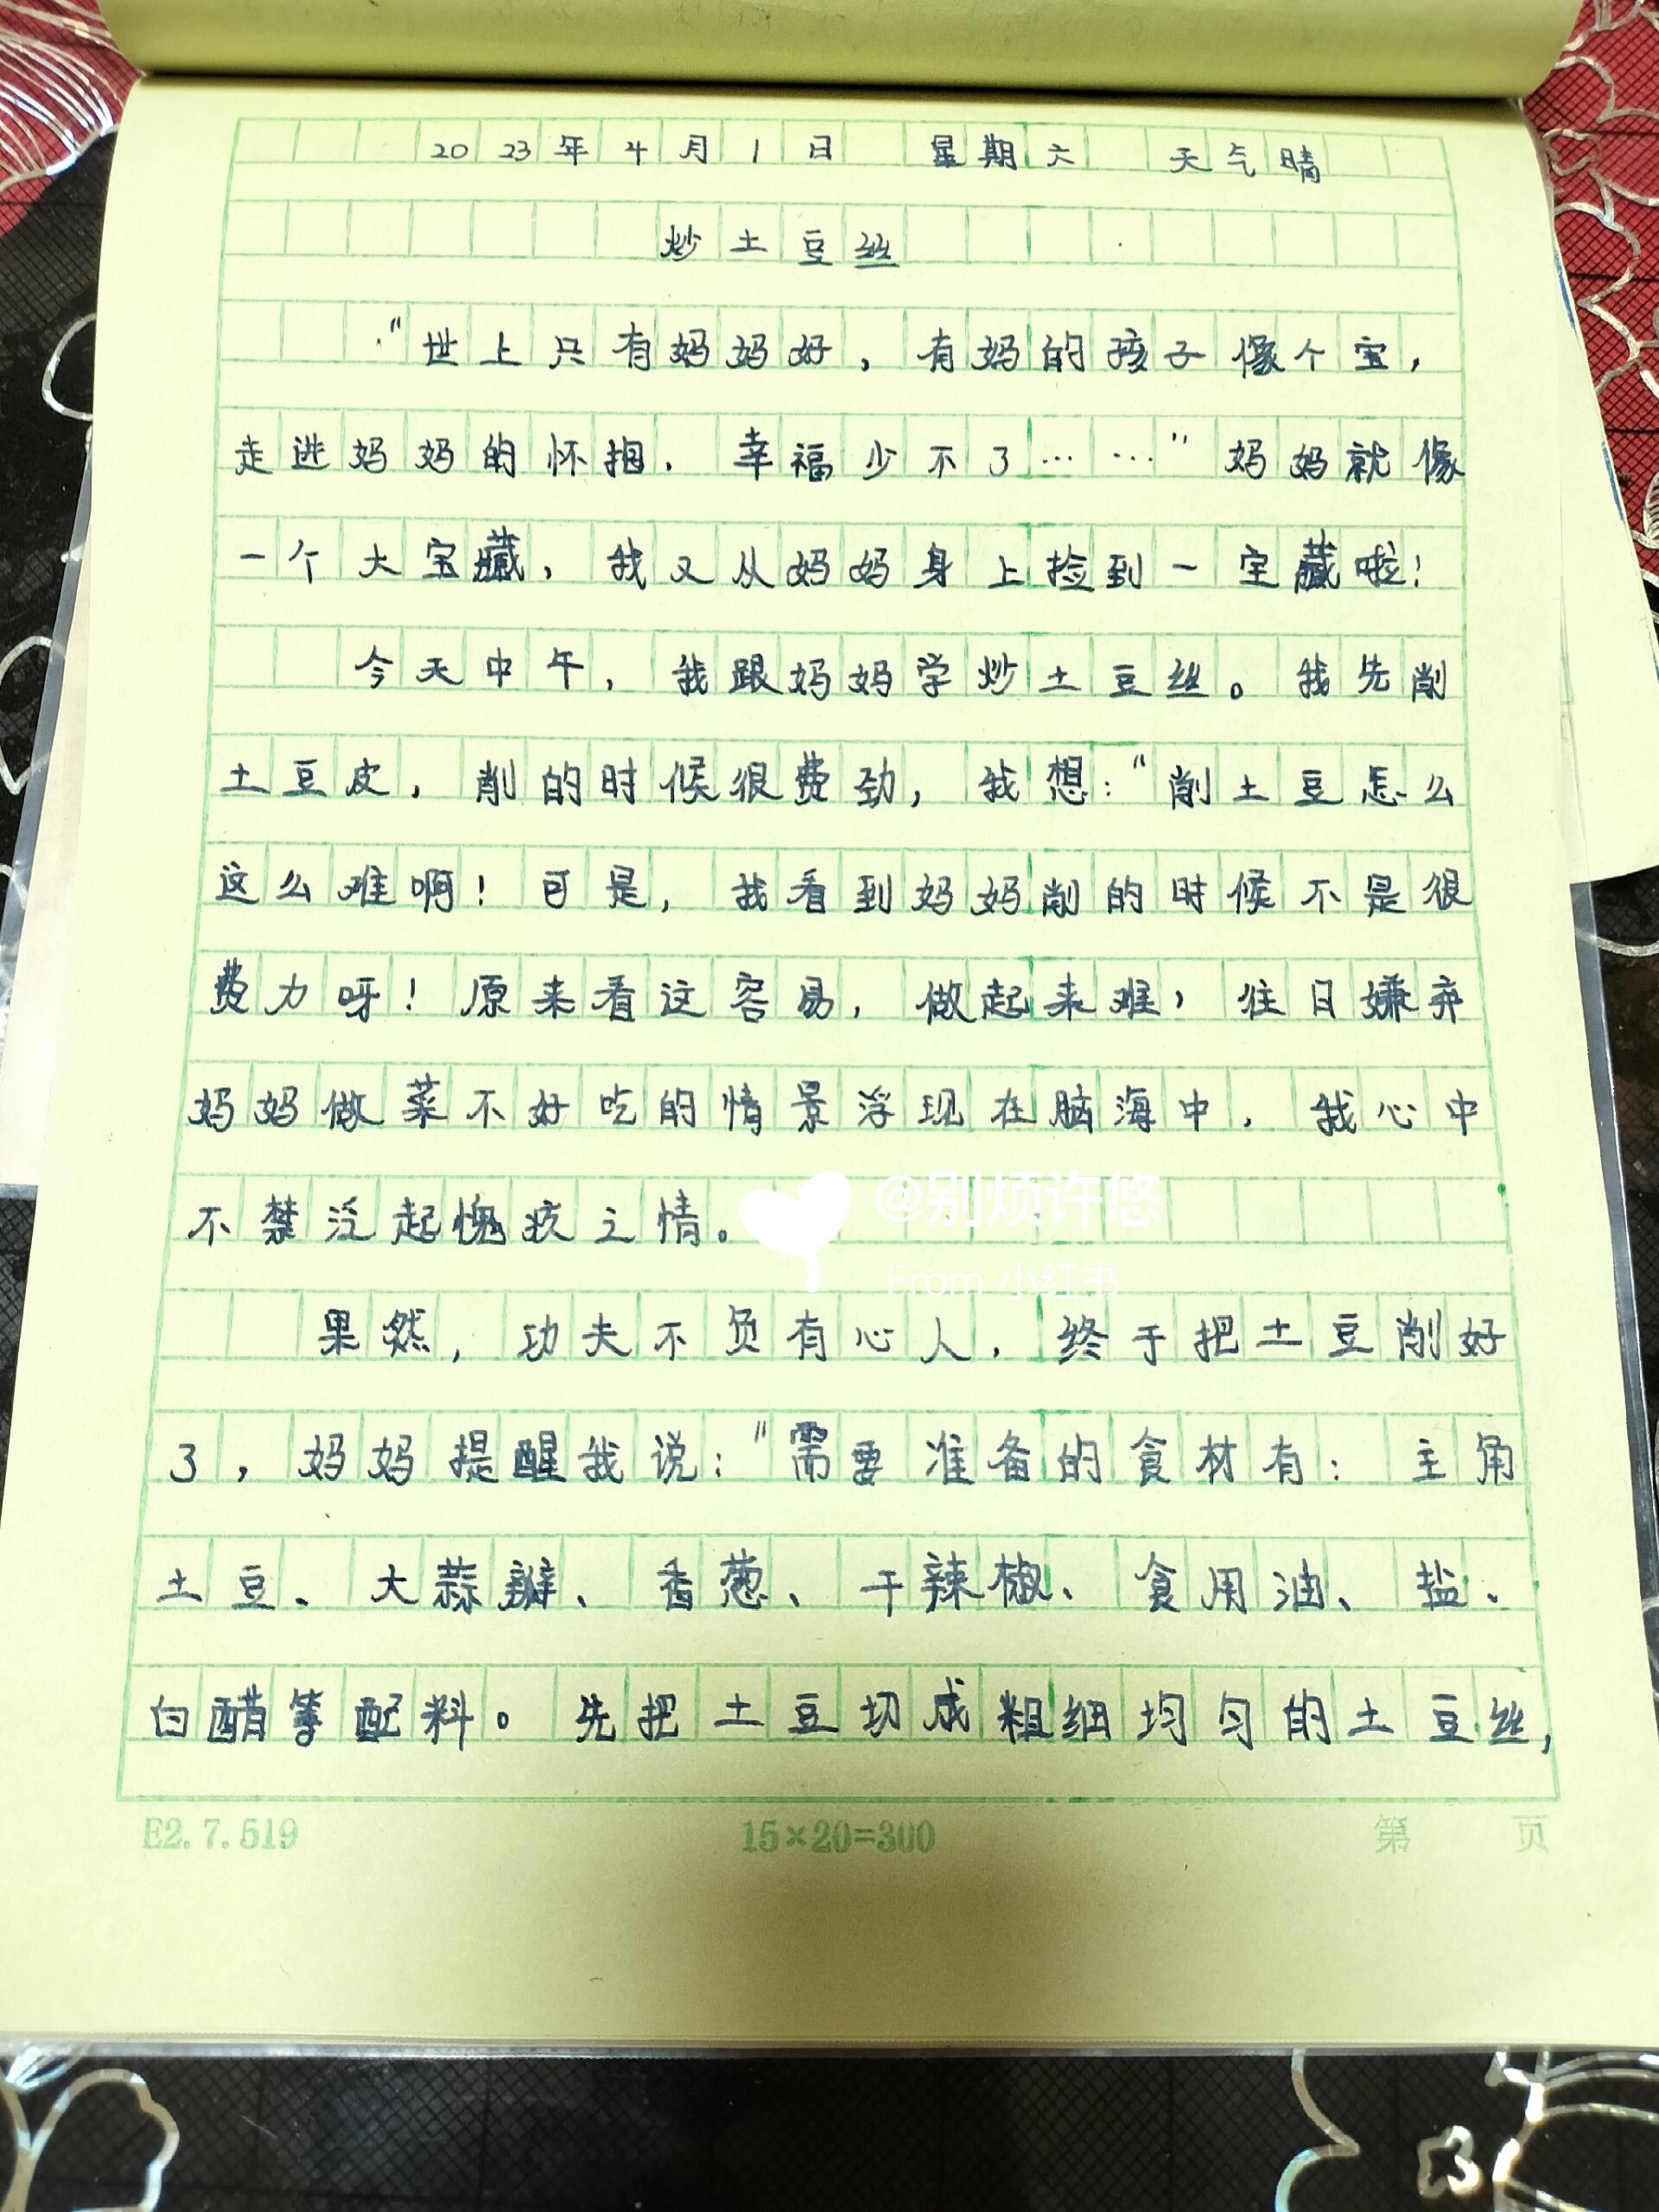 2023年4月1日 星期六 天气晴
炒土豆丝
“世上只有妈妈好，有妈的孩子像个宝，
走进妈妈的怀抱，幸福少不了……”妈妈就像
一个大宝藏，我又从妈妈身上捡到一宝藏啦！
今天中午，我跟妈妈学炒土豆丝。我先削
土豆皮，削的时候很费劲，我想：“削土豆怎么
这么难啊！可是，我看到妈妈削的时候不是很
费力呀！原来看这容易，做起来难，往日嫌弃
妈妈做菜不好吃的情景浮现在脑海中，我心中
不禁泛起愧疚之情。
@别烦许悠
From 小红书
果然，功夫不负有心人，终于把土豆削好
了，妈妈提醒我说：“需要准备的食材有：主角
土豆、大蒜瓣、香葱、干辣椒、食用油、盐、
白醋等配料。先把土豆切成粗细均匀的土豆丝，
E2.7.519 15×20=300 第 页